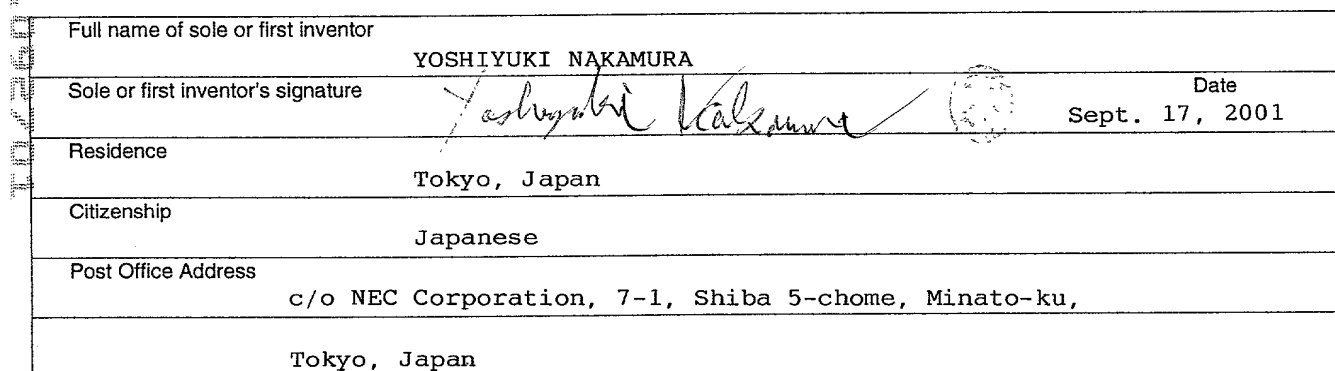 Full name of sole or first inventor
YOSHIYUKI NAKAMURA
Sole or first inventor's signature
Yoshiyuki Nakamura
Date
Sept. 17, 2001
Residence
Tokyo, Japan
Citizenship
Japanese
Post Office Address
c/o NEC Corporation, 7-1, Shiba 5-chome, Minato-ku,
Tokyo, Japan